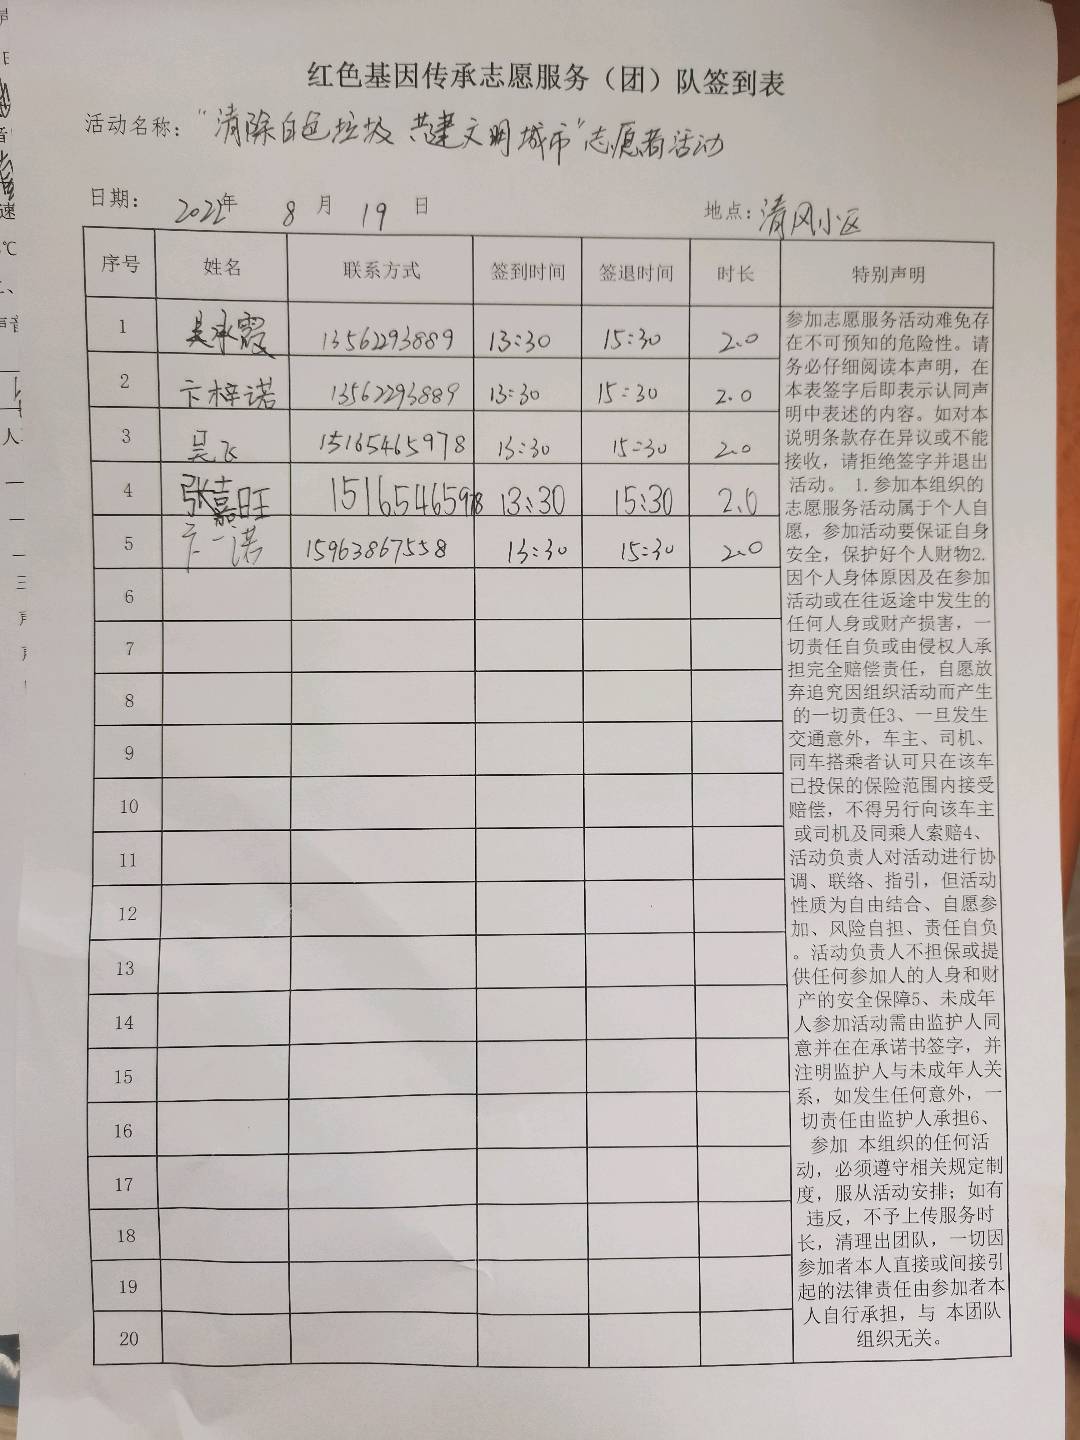 红色基因传承志愿服务（团）队签到表
活动名称：“清除白色垃圾 共建文明城市”志愿者活动
日期： 2022年 8 月 19 日 地点：清风小区
序号 姓名 联系方式 签到时间 签退时间 时长 特别声明
1 吴承霞 13562293889 13:30 15:30 2.0
2 卞梓诺 13562293889 13:30 15:30 2.0
3 吴飞 15165465978 13:30 15:30 2.0
4 张嘉旺 15165465978 13:30 15:30 2.0
5 卞一诺 15963867558 13:30 15:30 2.0
6
7
8
9
10
11
12
13
14
15
16
17
18
19
20
参加志愿服务活动难免存
在不可预知的危险性。请
务必仔细阅读本声明，在
本表签字后即表示认同声
明中表述的内容。如对本
说明条款存在异议或不能
接收，请拒绝签字并退出
活动。 1.参加本组织的
志愿服务活动属于个人自
愿，参加活动要保证自身
安全，保护好个人财物2.
因个人身体原因及在参加
活动或在往返途中发生的
任何人身或财产损害，一
切责任自负或由侵权人承
担完全赔偿责任，自愿放
弃追究因组织活动而产生
的一切责任3、一旦发生
交通意外，车主、司机、
同车搭乘者认可只在该车
已投保的保险范围内接受
赔偿，不得另行向该车主
或司机及同乘人索赔4、
活动负责人对活动进行协
调、联络、指引，但活动
性质为自由结合、自愿参
加、风险自担、责任自负
。活动负责人不担保或提
供任何参加人的人身和财
产的安全保障5、未成年
人参加活动需由监护人同
意并在在承诺书签字，并
注明监护人与未成年人关
系，如发生任何意外，一
切责任由监护人承担6、
参加 本组织的任何活
动，必须遵守相关规定制
度，服从活动安排；如有
违反，不予上传服务时
长，清理出团队，一切因
参加者本人直接或间接引
起的法律责任由参加者本
人自行承担，与 本团队
组织无关。